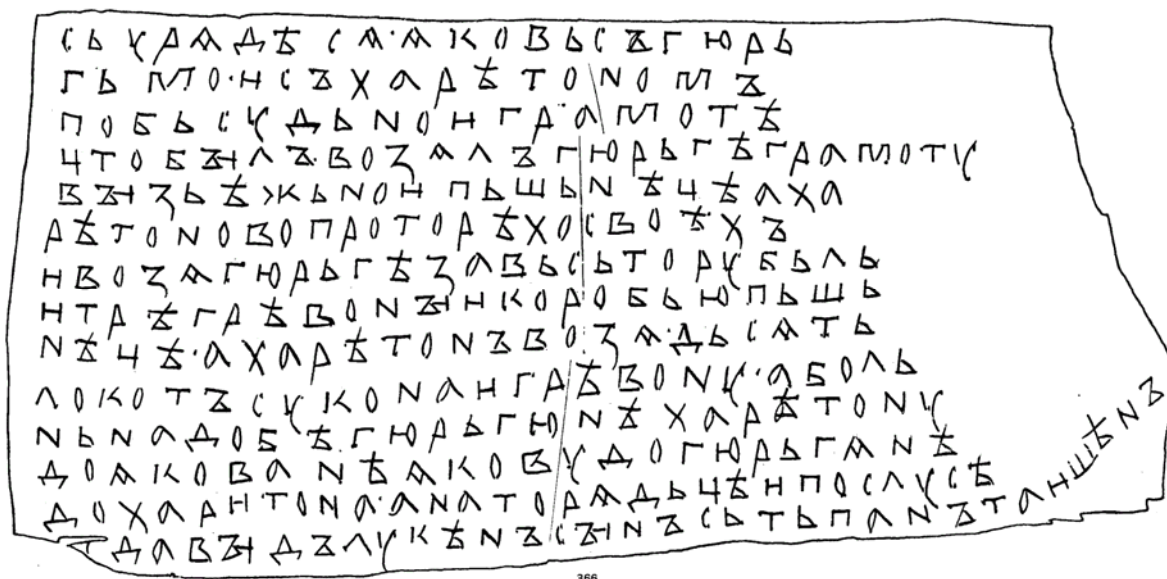 сьурѧдѣсѧ·ѧковьсъгюрь
гьмо·исъхарѣтономъ
побьсудьноиграмотѣ
цтобꙑлъ·возалъгюрьгѣграмоту
вꙑзьѣжьноипьшьнѣцѣаха
рѣтоновопроторѣхосвоѣхъ
ивозѧгюрьгѣзавьсьторубьль
итрѣгрѣвонꙑикоробьюпьшь
нѣцѣ·ахарѣтонъвозѧдьсѧть
локотъсуконаигрѣвону·аболь
ньнадобѣгюрьгюнѣхарѣтону
доѧкованѣѧковудогюрьгѧнѣ
дохаритона·анаторѧдьцѣипослусѣ
давꙑдълукѣнъсꙑнъсьтьпанътаишѣнъ
366